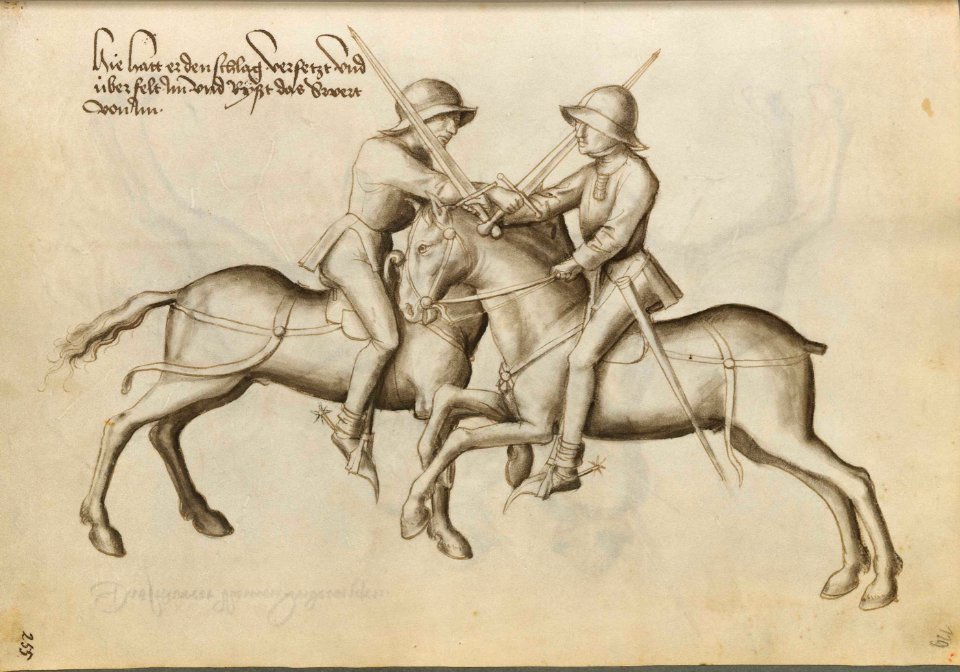 Hie hatt er den schlag versetzt vnd
über felt im vnd Rÿßt das Swert
von im.
255
129